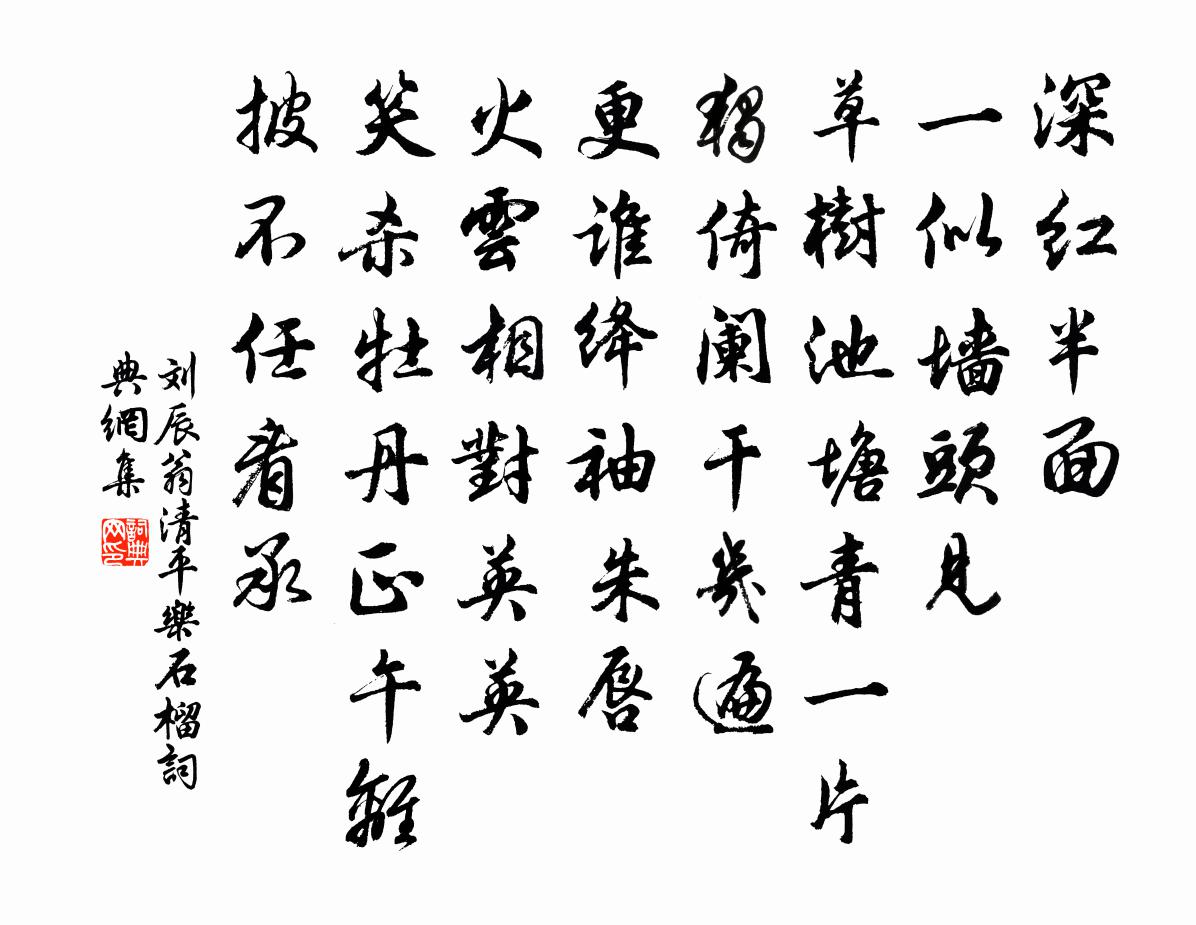 深红半面
一似墙頭見
草樹池塘青一片
獨倚阑干幾遍
更谁绛袖朱唇
火雲相對英英
笑杀牡丹正午離
披不任看承
刘辰翁清平樂石榴詞
典網集
詞典网印